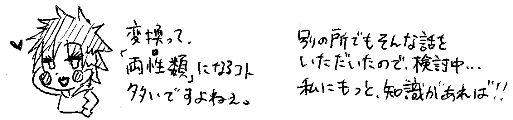 変換って、
「両性類」になるコト
多いですよねぇ。
別の所でもそんな話を
いただいたので、検討中…
私にもっと、知識があれば!!